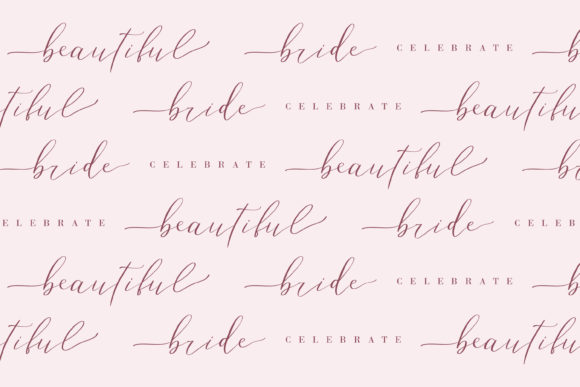 beautiful bride CELEBRATE b
tiful bride CELEBRATE beautifu
bride CELEBRATE beautiful br
ELEBRATE beautiful bride CELEB
beautiful bride CELEBRATE b
tiful bride CELEBRATE beautifu